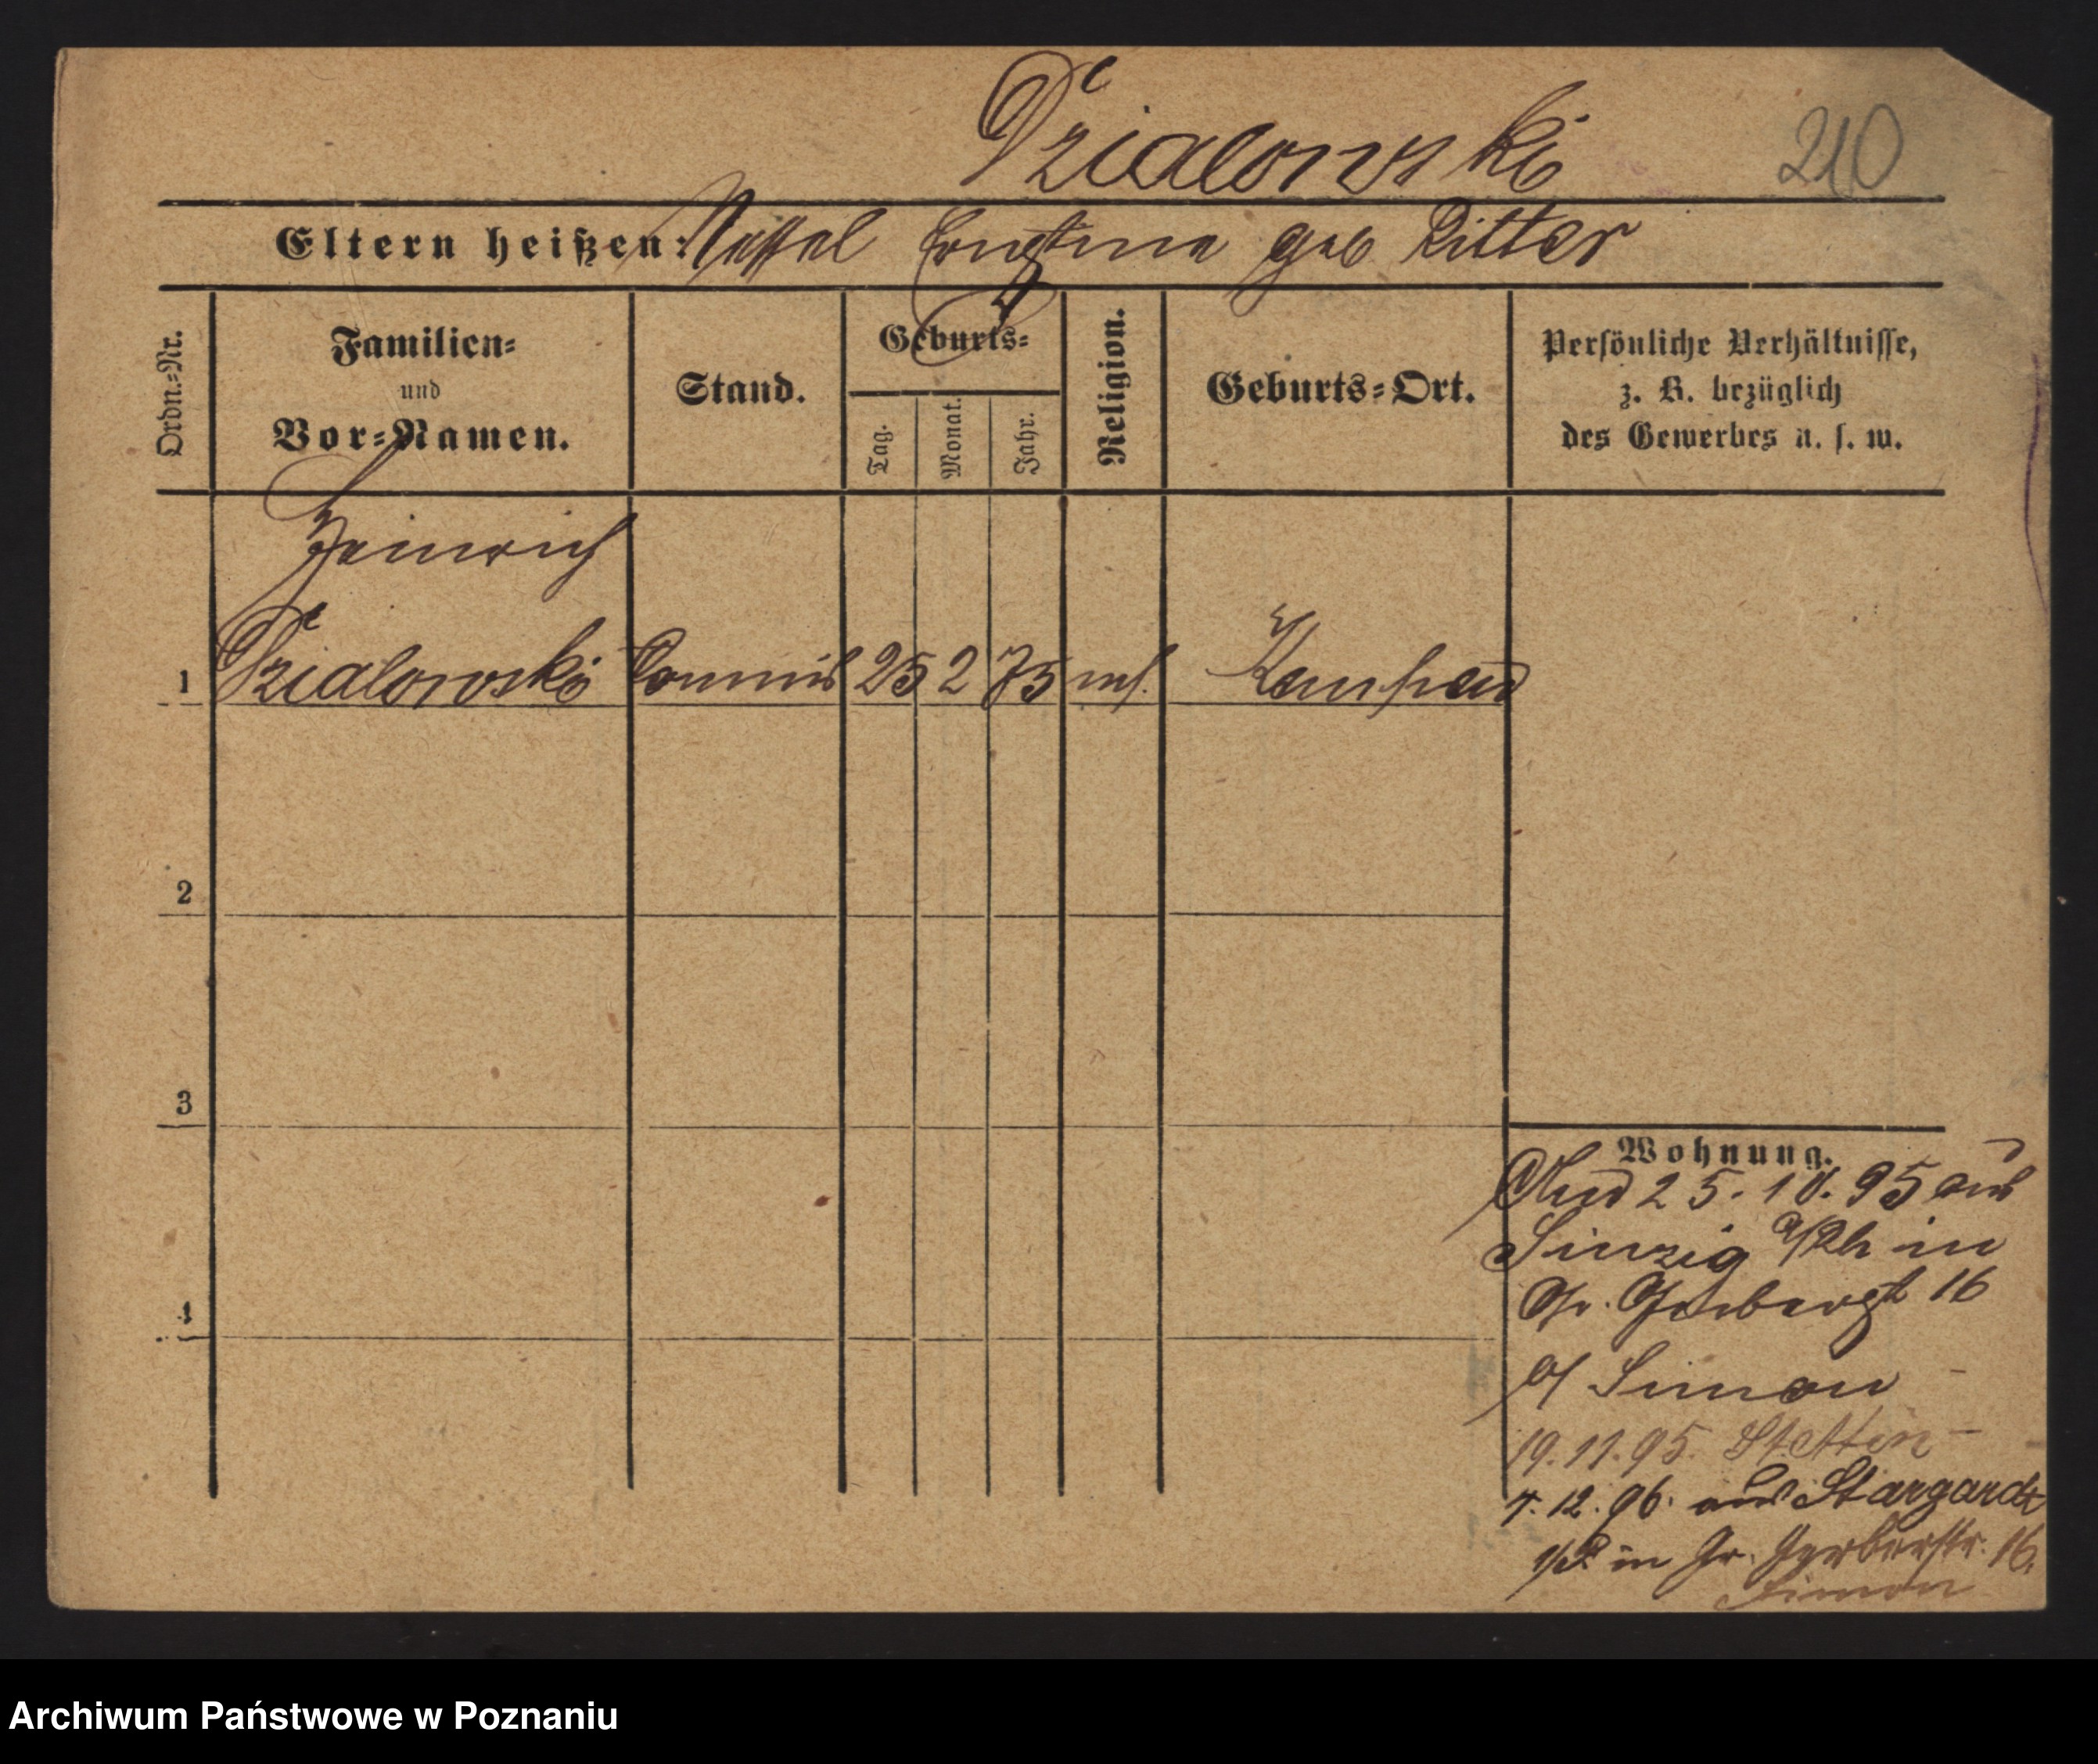 Dzialowski 210
Eltern heißen: geb Ritter
Ordn.-Nr.
Familien-
und
Vor-Namen.
Stand.
Geburts-
Tag.
Monat.
Jahr.
Religion.
Geburts-Ort.
Persönliche Verhältnisse,
z. B. bezüglich
des Gewerbes u. s. w.
Heinrich
1 Dzialowski Commis 25 2 75 mos. Kempen
2
3
4
Wohnung.
25. 10. 95 aus
in
Gr. Gerberst 16
b/ Simon
19. 11. 95. Stettin
7. 12. 96. aus Stargardt
in Gr. Gerberstr. 16.
Simon
Archiwum Państwowe w Poznaniu